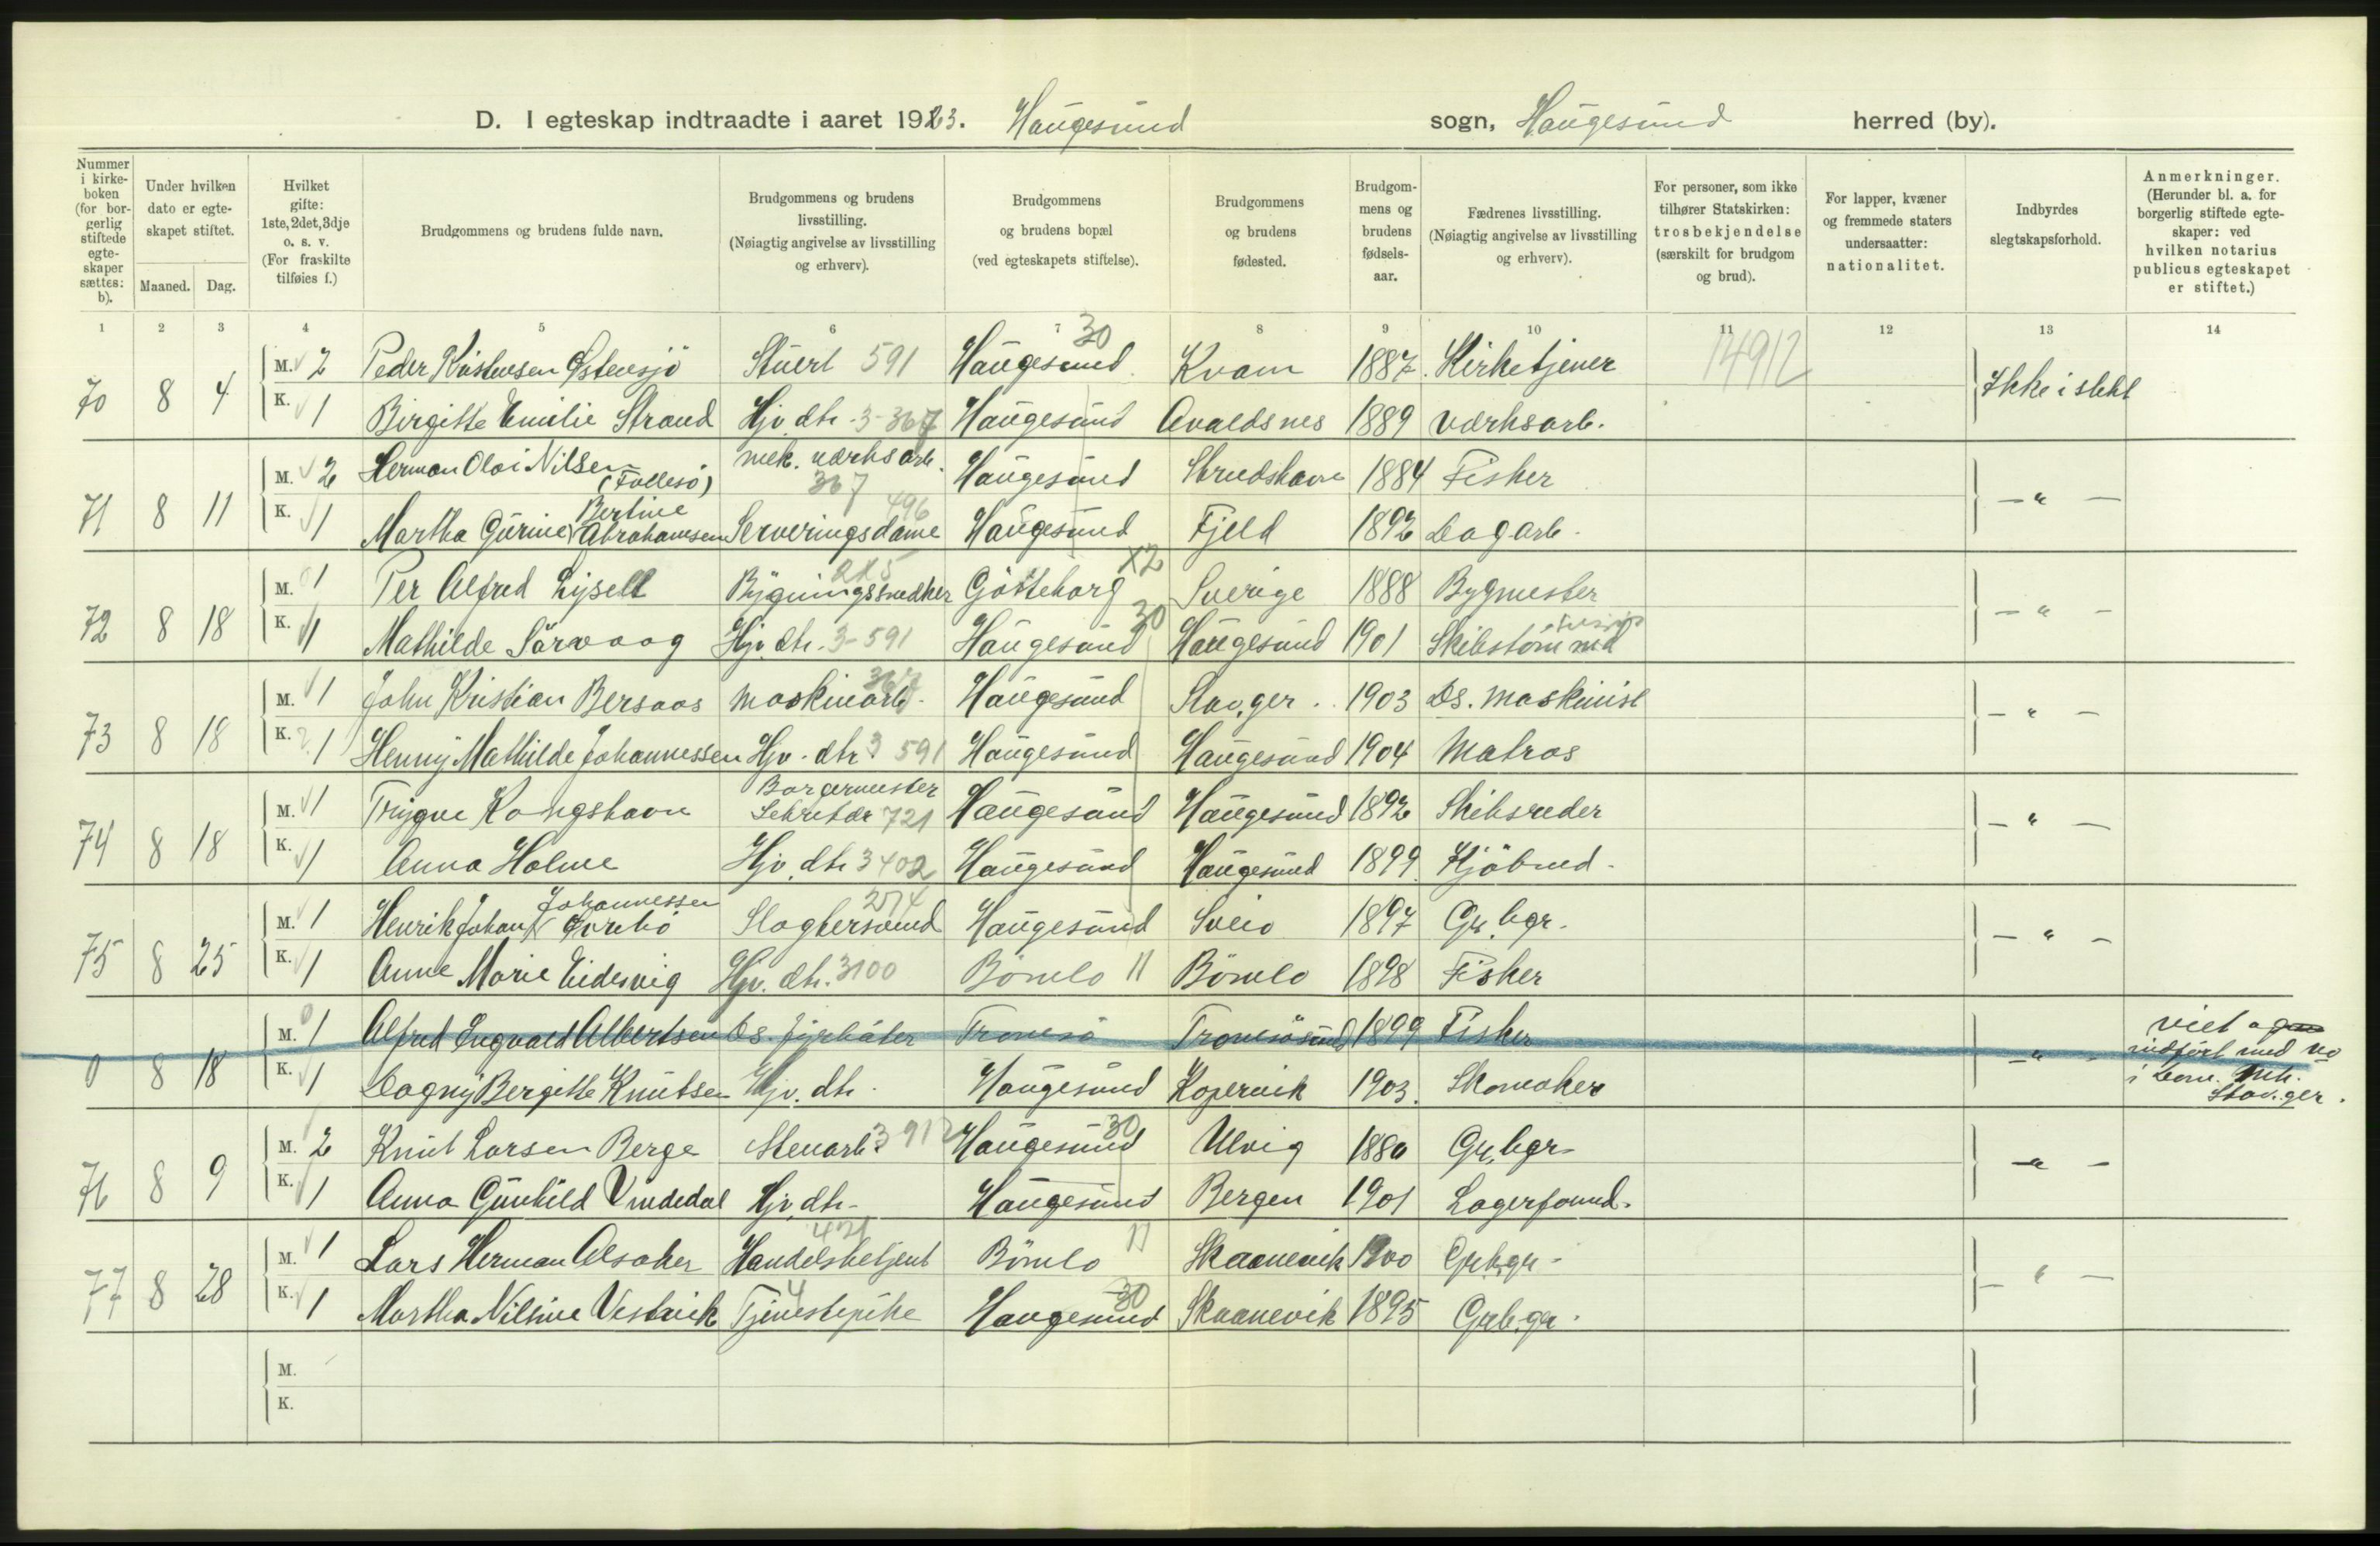 D. I egteskap indtraadte i aaret 1923. Haugesund sogn, Haugesund herred (by).
Nummer i kirkeboken (for borgerlig stiftede egteskaper sættes: b).
Under hvilken dato er egteskapet stiftet.
Maaned. Dag.
Hvilket gifte: 1ste, 2det, 3dje o. s. v. (For fraskilte tilføies f.)
Brudgommens og brudens fulde navn.
Brudgommens og brudens livsstilling. (Nøiagtig angivelse av livsstilling og erhverv).
Brudgommens og brudens bopæl (ved egteskapets stiftelse).
Brudgommens og brudens fødested.
Brudgommens og brudens fødselsaar.
Fædrenes livsstilling. (Nøiagtig angivelse av livsstilling og erhverv).
For personer, som ikke tilhører Statskirken: trosbekjendelse (særskilt for brudgom og brud).
For lapper, kvæner og fremmede staters undersaatter: nationalitet.
Indbyrdes slegtskapsforhold.
Anmerkninger. (Herunder bl. a. for borgerlig stiftede egteskaper: ved hvilken notarius publicus egteskapet er stiftet.)
1 2 3 4 5 6 7 8 9 10 11 12 13 14
30
70 8 4 M. 2 Peder Kristensen Østensjö Stuert 591 Haugesund Kvam 1887 Kirketjener 14912 Ikke i slekt
K. 1 Birgitte Emilie Strand Hjv. dtr. 3-367 Haugesund Avaldsnes 1889 Værksarb.
71 8 11 M. 2 Herman Olai Nilsen (Follesö) mek. værksarb. 367 Haugesund Strudshavn 1884 Fisker - " -
K. 1 Martha Gurine Bertine Abrahamsen Serveringsdame 496 Haugesund Fjeld 1892 Dagarb.
72 8 18 M. 1 Per Alfred Lysell Bygningssnedker Göteborg X2 Sverige 1888 Bygmester - " -
K. 1 Mathilde Sörvaag Hjv. dtr. 3-591 Haugesund 30 Haugesund 1901 Skibstömmmd
73 8 18 M. 1 John Kristian Bersaas Maskinarb. 367 Haugesund Stav.ger 1903 Ds. maskinist - " -
K. 1 Henny Mathilde Johannessen Hjv. dtr 3 591 Haugesund Haugesund 1904 Matros
74 8 18 M. 1 Trygve Kongshavn Borgermester Sekretær 721 Haugesund Haugesund 1892 Skibsreder - " -
K. 1 Anna Holme Hjv. dtr 3402 Haugesund Haugesund 1899 Kjöbmd.
75 8 25 M. 1 Henrik Johan Johannessen Slagtersvend 274 Haugesund Sveio 1897 Gr. bgr. - " -
K. 1 Anne Marie Eidesvig Hjv. dtr. 3100 Bömlo 11 Bömlo 1898 Fisker
0 8 18 M. 1 Alfred Ingvald Albertsen Ds. fyrböter Tromsö Tromsösund 1899 Fisker - " - viet og indfört med no i Dom. Mh. Stav.ger.
K. 1 Dagny Bergitte Knutsen Hjv. dtr. Haugesund Kopervik 1903 Skomaker
76 8 9 M. 2 Knut Larsen Berge Stenarb. 3912 Haugesund 30 Ulvig 1880 Gr. bgr. - " -
K. 1 Anna Gunhild Vindedal Hjv. dtr. Haugesund Bergen 1901 Lagerformd.
77 8 28 M. 1 Lars Herman Alsaker Handelsbetjent 421 Bömlo 11 Skaanevik 1900 Grb.gr. - " -
K. 1 Martha Nilsine Vestvik Tjenestepike 4 Haugesund 30 Skaanevik 1895 Grb.gr.
M.
K.